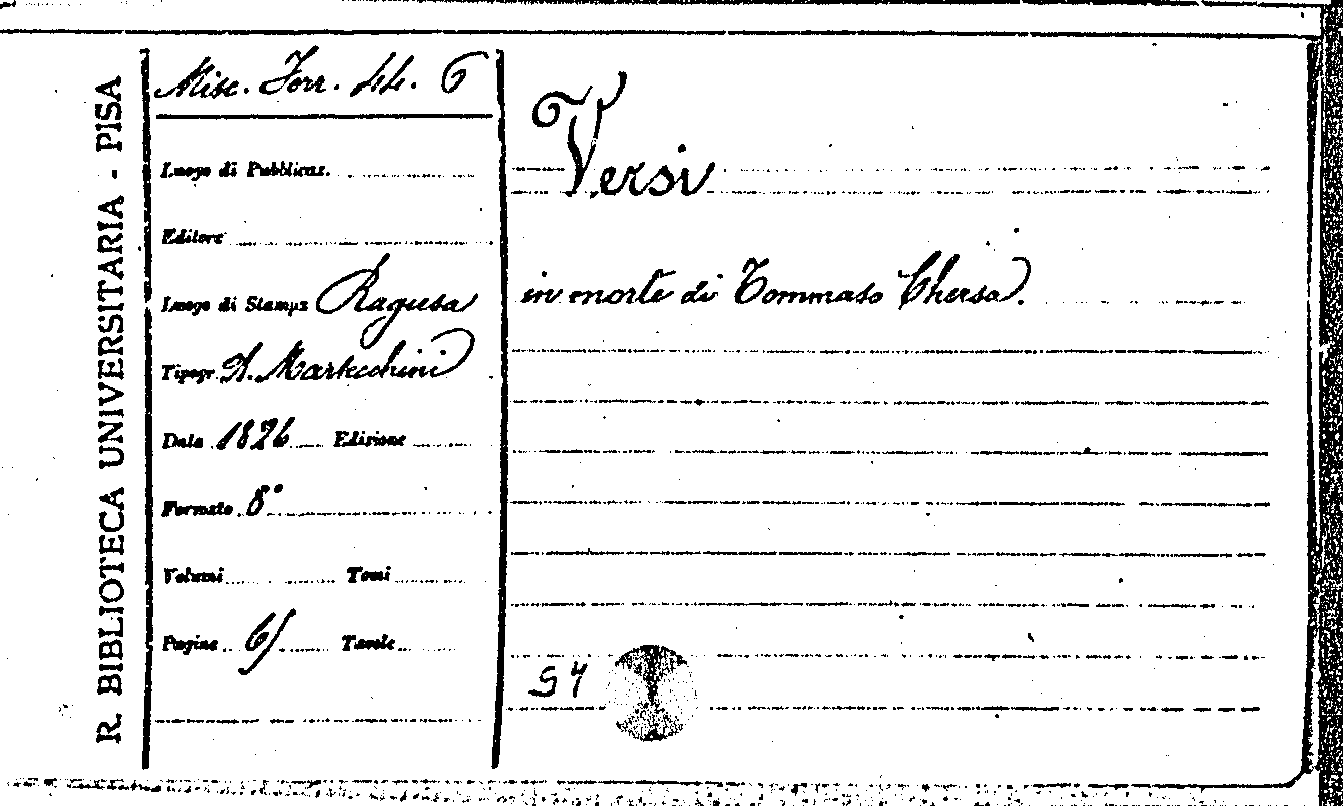 R. BIBLIOTECA UNIVERSITARIA - PISA
Misc. Ferr. 44. 6
Luogo di Pubblicaz.
Editore
Luogo di Stampa Ragusa
Tipogr. A. Martecchini
Data 1826 Edizione
Formato 8°
Volumi Tomi
Pagine Tavole
Versi
in morte di Tommaso Chersa.
54